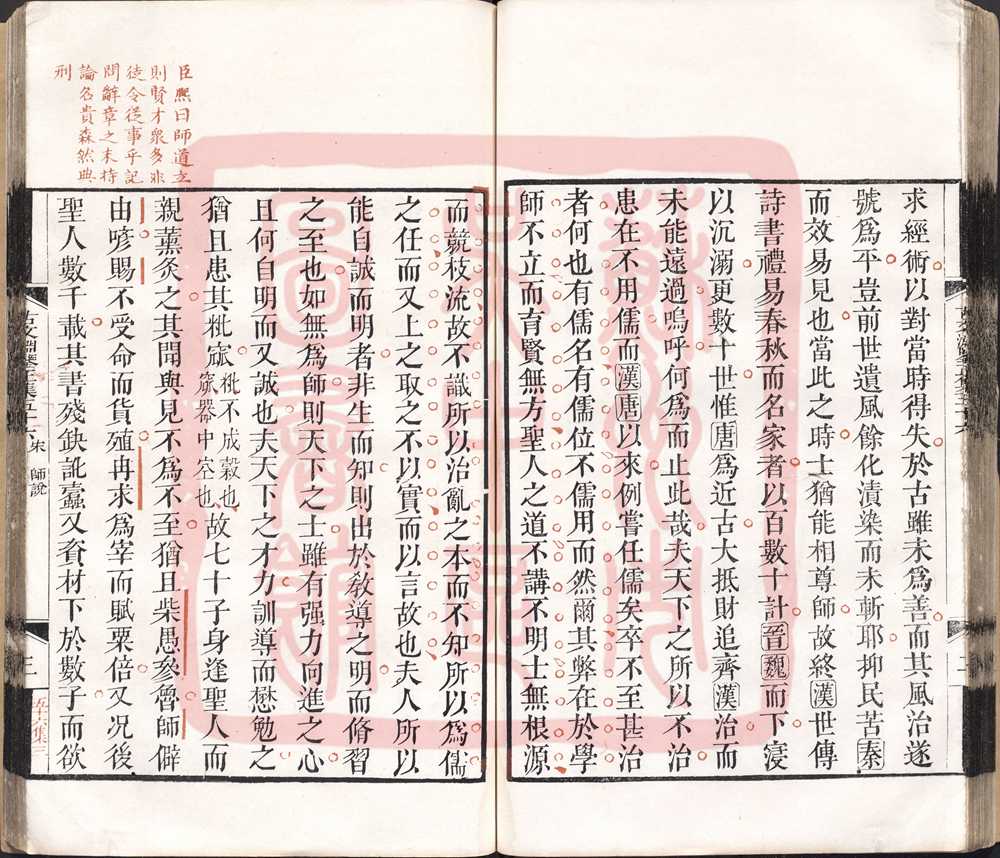 求經術以對當時得失於古雖未爲善而其風治遂
號爲平豈前世遺風餘化漬染而未斬耶抑民苦秦
而效易見也當此之時士猶能相尊師故終漢世傳
詩書禮易春秋而名家者以百數十計晉魏而下寖
以沉溺更數十世惟唐爲近古大抵財追齊漢治而
未能遠過嗚呼何爲而止此哉夫天下之所以不治
患在不用儒而漢唐以來例嘗任儒矣卒不至甚治
者何也有儒名有儒位不儒用而然爾其弊在於學
師不立而育賢無方聖人之道不講不明士無根源
臣熙曰師道立
則賢才衆多非
徒令從事乎記
問辭章之末持
論名貴森然典
刑
而競枝流故不識所以治亂之本而不知所以爲儒
之任而又上之取之不以實而以言故也夫人所以
能自誠而明者非生而知則出於敎導之明而脩習
之至也如無爲師則天下之士雖有强力向進之心
且何自明而又誠也夫天下之才力訓導而懋勉之
猶且患其粃窳粃不成穀也窳器中空也故七十子身逢聖人而
親薰炙之其聞與見不爲不至猶且柴愚參魯師僻
由喭賜不受命而貨殖冉求爲宰而賦粟倍又況後
聖人數千載其書殘缺訛蠹又資材下於數子而欲
師說
三